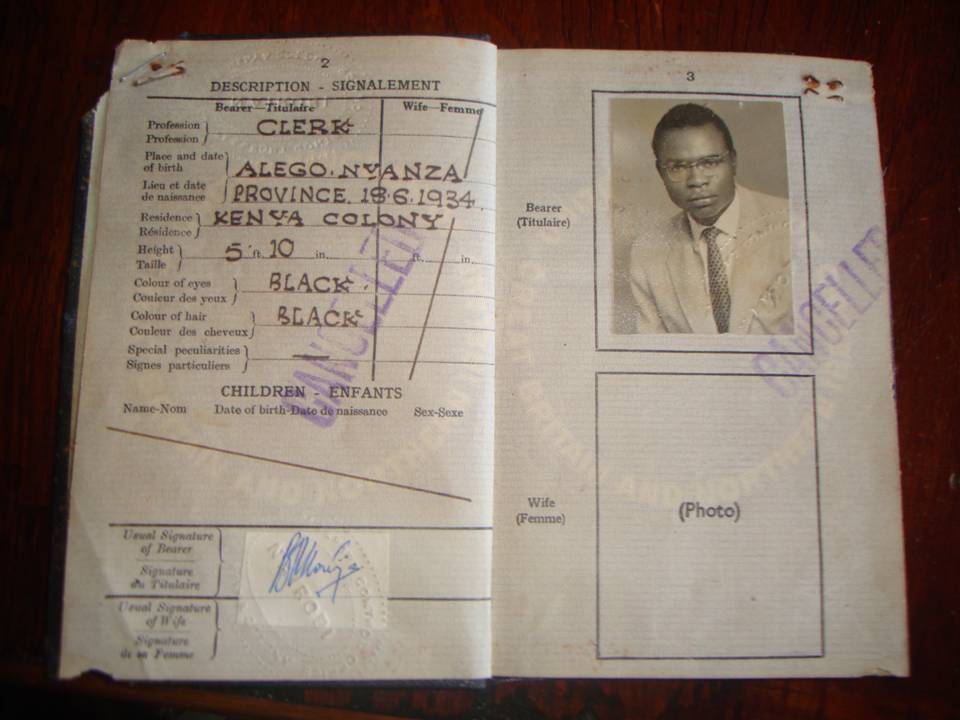 2
DESCRIPTION - SIGNALEMENT
Bearer—Titulaire Wife—Femme
Profession
Profession
CLERK
Place and date
of birth
ALEGO. NYANZA
Lieu et date
de naissance
PROVINCE. 18.6.1934
Residence
Résidence
KENYA COLONY
Height
Taille
5 ft. 10 in. ft. in.
Colour of eyes
Couleur des yeux
BLACK
Colour of hair
Couleur des cheveux
BLACK
Special peculiarities
Signes particuliers
—
CANCELLED
CHILDREN - ENFANTS
Name-Nom Date of birth-Date de naissance Sex-Sexe
Usual Signature
of Bearer
Signature
du Titulaire
Usual Signature
of Wife
Signature
de sa Femme
3
Bearer
(Titulaire)
CANCELLED
GREAT BRITAIN AND NORTHERN
Wife
(Femme)
(Photo)